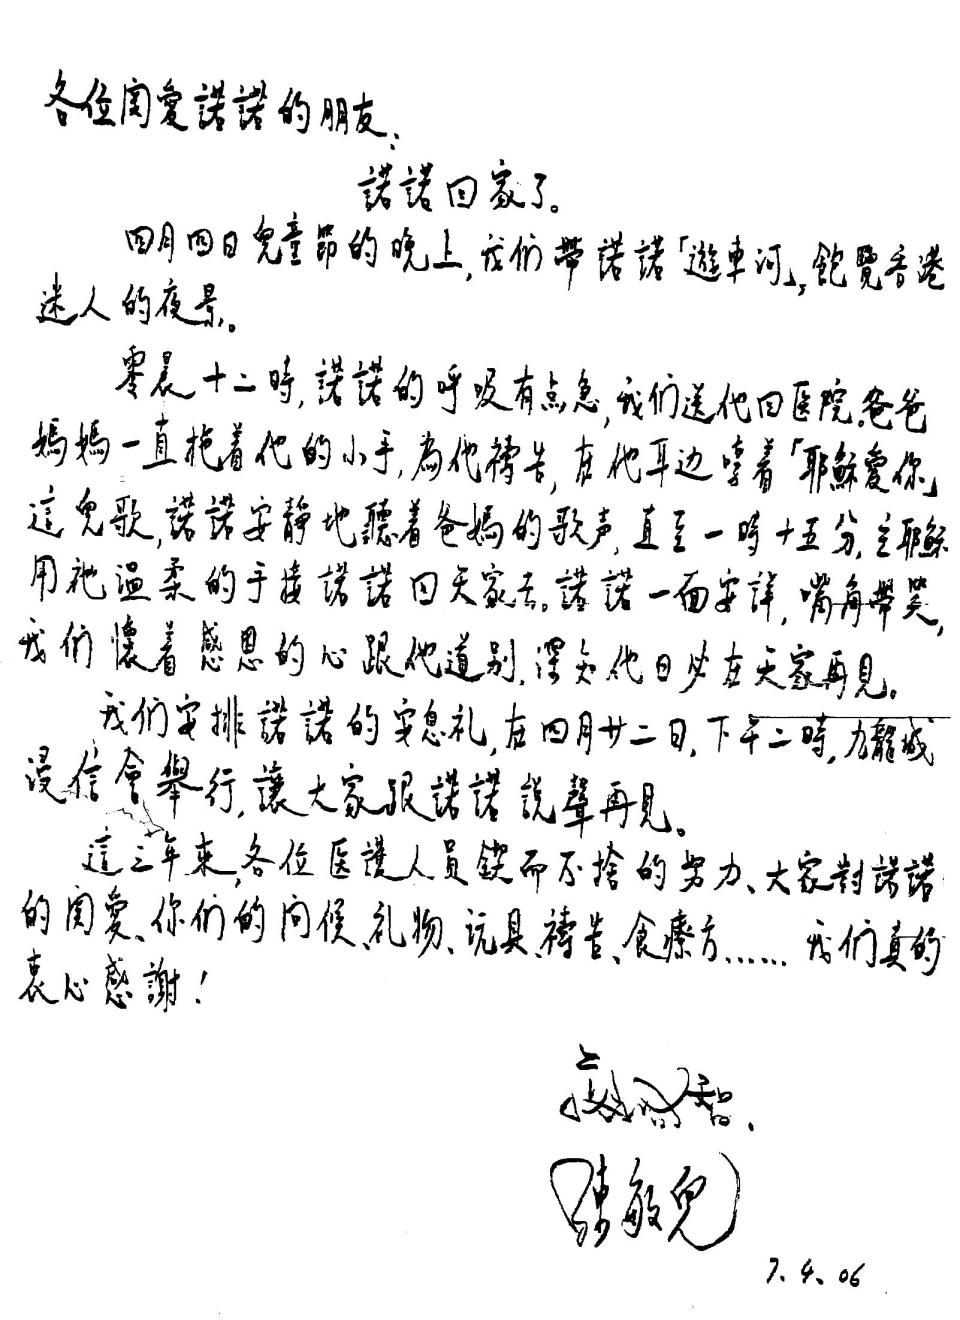 各位関愛諾諾的朋友：
諾諾回家了。
四月四日兒童節的晚上，我们帶諾諾「遊車河」，飽覽香港
迷人的夜景。
零晨十二時，諾諾的呼吸有点急，我们送他回医院。爸爸
媽媽一直拖着他的小手，為他禱告，在他耳边唱着「耶穌愛你」
這兒歌，諾諾安靜地聽着爸媽的歌声，直至一時十五分，主耶穌
用祂温柔的手接諾諾回天家去。諾諾一面安詳，嘴角帶笑，
我们懷着感恩的心跟他道别，深知他日必在天家再見。
我们安排諾諾的安息礼，在四月廿二日，下午二時，九龍城
浸信會舉行，讓大家跟諾諾説聲再見。
這三年來，各位医護人員鍥而不捨的努力、大家對諾諾
的関愛、你们的问候、礼物、玩具、禱告、食療方…… 我们真的
衷心感謝！
陳敏兒
7.4.06